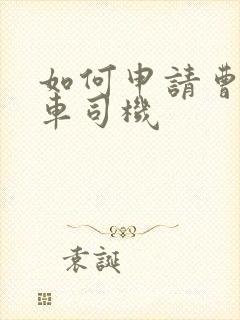 如何申請曹
車司機
袁誕